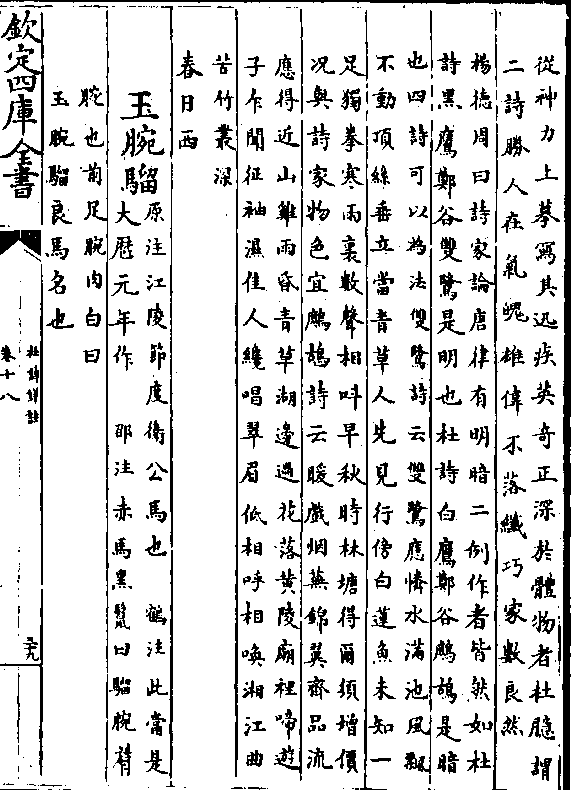 從神力上摹寫其迅疾英奇正深於體物者杜臆謂
二詩勝人在氣魄雄偉不落纖巧家數良然
楊德周曰詩家論唐律有明暗二例作者皆然如杜
詩黑鷹鄭谷雙鷺是明也杜詩白鷹鄭谷鷓鴣是暗
也四詩可以為法雙鷺詩云雙鷺應憐水滿池風飄
不動頂絲垂立當青草人先見行傍白蓮魚未知一
足獨拳寒雨裏數聲相呌早秋時林塘得爾須增價
况與詩家物色宜鷓鴣詩云暖戲烟蕪錦翼齊品流
應得近山雞雨昏青草湖邊過花落黄陵廟裡啼遊
子乍聞征袖濕佳人纔唱翠眉低相呼相喚湘江曲
苦竹叢深
春日西
玉腕騮原注江陵節度衛公馬也 鶴注此當是
大厯元年作 邵注赤馬黑鬛曰騮腕臂
腕也前足腕肉白曰
玉腕騮良馬名也
欽定四庫全書
杜詩詳註
卷十八
二十九